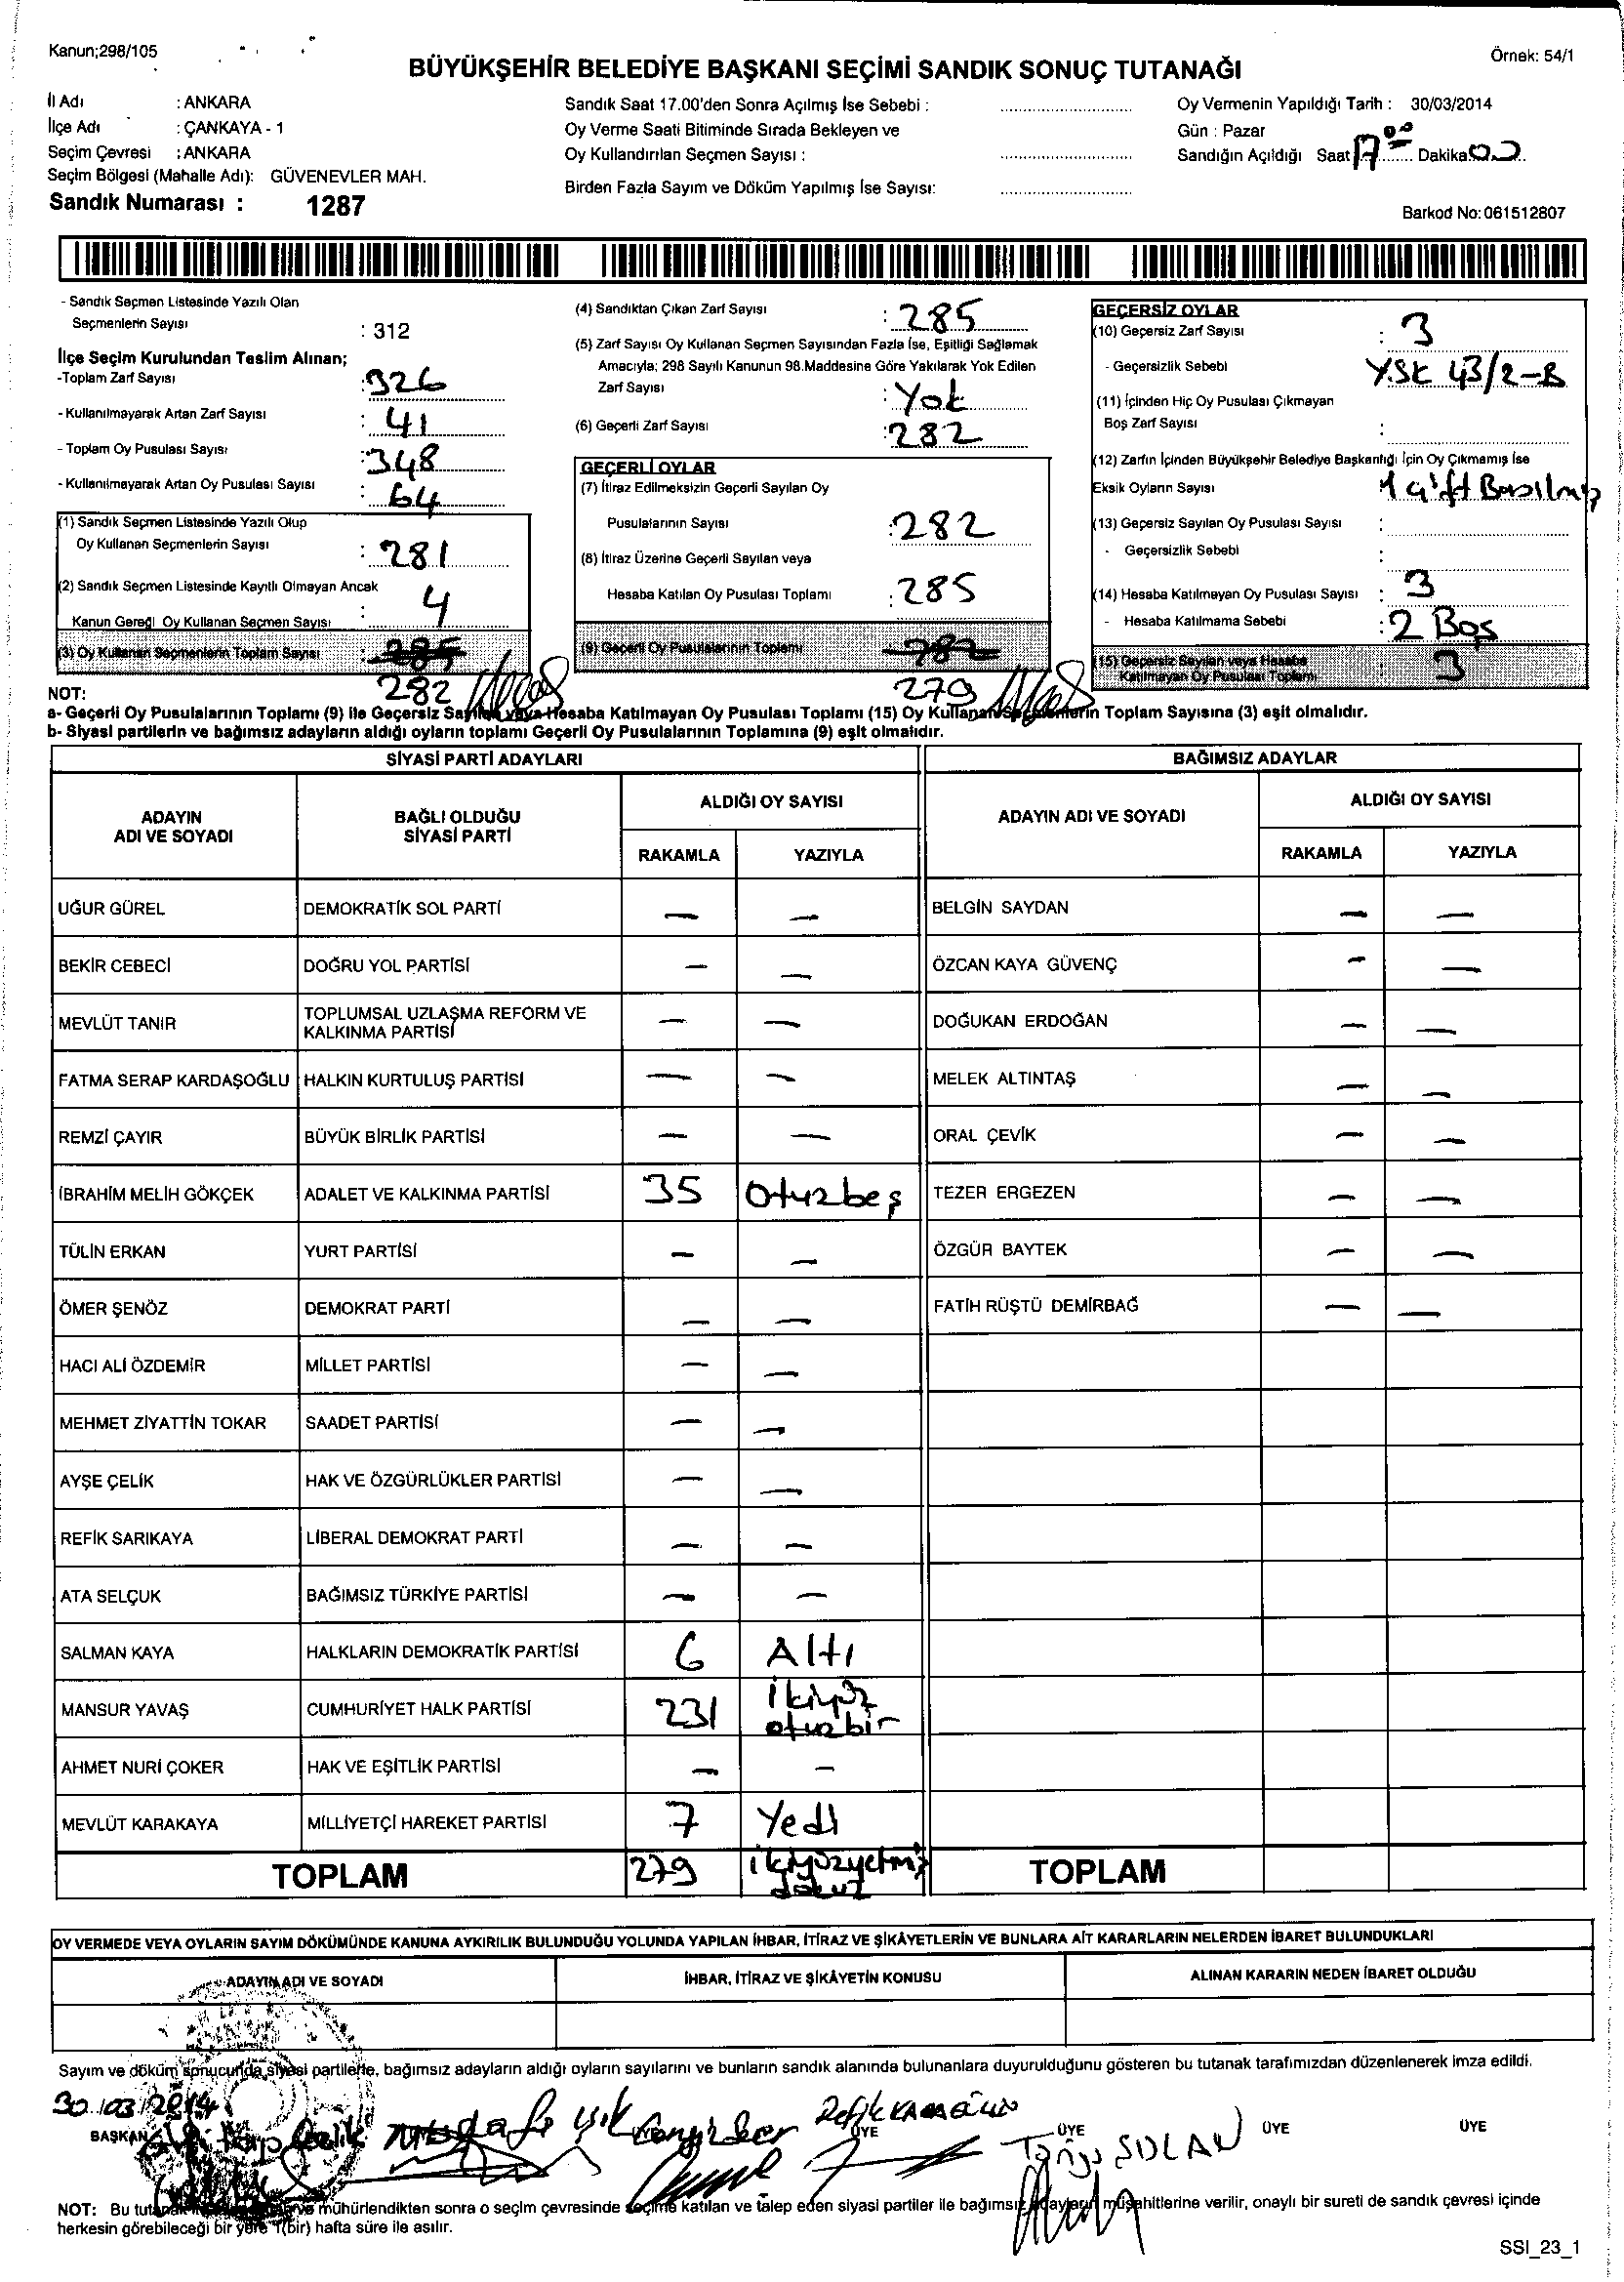 Kanun;298/105
Örnek: 54/1
BÜYÜKŞEHİR BELEDİYE BAŞKANI SEÇİMİ SANDIK SONUÇ TUTANAĞI
İl Adı : ANKARA
İlçe Adı : ÇANKAYA - 1
Seçim Çevresi : ANKARA
Seçim Bölgesi (Mahalle Adı): GÜVENEVLER MAH.
Sandık Numarası : 1287
Sandık Saat 17.00'den Sonra Açılmış İse Sebebi :
Oy Verme Saati Bitiminde Sırada Bekleyen ve
Oy Kullandırılan Seçmen Sayısı :
Birden Fazla Sayım ve Döküm Yapılmış İse Sayısı:
Oy Vermenin Yapıldığı Tarih : 30/03/2014
Gün : Pazar
Sandığın Açıldığı Saat 17 00 Dakika 00
Barkod No: 061512807
- Sandık Seçmen Listesinde Yazılı Olan
Seçmenlerin Sayısı : 312
İlçe Seçim Kurulundan Teslim Alınan;
-Toplam Zarf Sayısı : 326
- Kullanılmayarak Artan Zarf Sayısı : 41
- Toplam Oy Pusulası Sayısı : 348
- Kullanılmayarak Artan Oy Pusulası Sayısı : 64
(1) Sandık Seçmen Listesinde Yazılı Olup
Oy Kullanan Seçmenlerin Sayısı : 281
(2) Sandık Seçmen Listesinde Kayıtlı Olmayan Ancak
Kanun Gereği Oy Kullanan Seçmen Sayısı : 4
(3) Oy Kullanan Seçmenlerin Toplam Sayısı : 285
282
(4) Sandıktan Çıkan Zarf Sayısı : 285
(5) Zarf Sayısı Oy Kullanan Seçmen Sayısından Fazla İse, Eşitliği Sağlamak
Amacıyla; 298 Sayılı Kanunun 98.Maddesine Göre Yakılarak Yok Edilen
Zarf Sayısı : Yok
(6) Geçerli Zarf Sayısı : 282
GEÇERLİ OYLAR
(7) İtiraz Edilmeksizin Geçerli Sayılan Oy
Pusulalarının Sayısı : 282
(8) İtiraz Üzerine Geçerli Sayılan veya
Hesaba Katılan Oy Pusulası Toplamı : 285
(9) Geçerli Oy Pusulalarının Toplamı 282
279
GEÇERSİZ OYLAR
(10) Geçersiz Zarf Sayısı : 3
- Geçersizlik Sebebi YSK 43/2-B
(11) İçinden Hiç Oy Pusulası Çıkmayan
Boş Zarf Sayısı :
(12) Zarfın İçinden Büyükşehir Belediye Başkanlığı İçin Oy Çıkmamış İse
Eksik Oyların Sayısı 1 Çift Basılmış
(13) Geçersiz Sayılan Oy Pusulası Sayısı :
- Geçersizlik Sebebi :
(14) Hesaba Katılmayan Oy Pusulası Sayısı : 3
- Hesaba Katılmama Sebebi : 2 Boş
(15) Geçersiz Sayılan veya Hesaba
Katılmayan Oy Pusulası Toplamı : 3
NOT:
a- Geçerli Oy Pusulalarının Toplamı (9) ile Geçersiz Sayılan veya Hesaba Katılmayan Oy Pusulası Toplamı (15) Oy Kullanan Seçmenlerin Toplam Sayısına (3) eşit olmalıdır.
b- Siyasi partilerin ve bağımsız adayların aldığı oyların toplamı Geçerli Oy Pusulalarının Toplamına (9) eşit olmalıdır.
SİYASİ PARTİ ADAYLARI
BAĞIMSIZ ADAYLAR
ADAYIN
ADI VE SOYADI
BAĞLI OLDUĞU
SİYASİ PARTİ
ALDIĞI OY SAYISI
RAKAMLA YAZIYLA
ADAYIN ADI VE SOYADI
ALDIĞI OY SAYISI
RAKAMLA YAZIYLA
UĞUR GÜREL DEMOKRATİK SOL PARTİ — — BELGİN SAYDAN — —
BEKİR CEBECİ DOĞRU YOL PARTİSİ — — ÖZCAN KAYA GÜVENÇ — —
MEVLÜT TANIR TOPLUMSAL UZLAŞMA REFORM VE
KALKINMA PARTİSİ — — DOĞUKAN ERDOĞAN — —
FATMA SERAP KARDAŞOĞLU HALKIN KURTULUŞ PARTİSİ — — MELEK ALTINTAŞ — —
REMZİ ÇAYIR BÜYÜK BİRLİK PARTİSİ — — ORAL ÇEVİK — —
İBRAHİM MELİH GÖKÇEK ADALET VE KALKINMA PARTİSİ 35 Otuzbeş TEZER ERGEZEN — —
TÜLİN ERKAN YURT PARTİSİ — — ÖZGÜR BAYTEK — —
ÖMER ŞENÖZ DEMOKRAT PARTİ — — FATİH RÜŞTÜ DEMİRBAĞ — —
HACI ALİ ÖZDEMİR MİLLET PARTİSİ — —
MEHMET ZİYATTİN TOKAR SAADET PARTİSİ — —
AYŞE ÇELİK HAK VE ÖZGÜRLÜKLER PARTİSİ — —
REFİK SARIKAYA LİBERAL DEMOKRAT PARTİ — —
ATA SELÇUK BAĞIMSIZ TÜRKİYE PARTİSİ — —
SALMAN KAYA HALKLARIN DEMOKRATİK PARTİSİ 6 Altı
MANSUR YAVAŞ CUMHURİYET HALK PARTİSİ 231 İkiyüz
otuzbir
AHMET NURİ ÇOKER HAK VE EŞİTLİK PARTİSİ — —
MEVLÜT KARAKAYA MİLLİYETÇİ HAREKET PARTİSİ 7 Yedi
TOPLAM 279 ikiyüzyetmiş
dokuz TOPLAM
OY VERMEDE VEYA OYLARIN SAYIM DÖKÜMÜNDE KANUNA AYKIRILIK BULUNDUĞU YOLUNDA YAPILAN İHBAR, İTİRAZ VE ŞİKÂYETLERİN VE BUNLARA AİT KARARLARIN NELERDEN İBARET BULUNDUKLARI
ADAYIN ADI VE SOYADI
İHBAR, İTİRAZ VE ŞİKÂYETİN KONUSU
ALINAN KARARIN NEDEN İBARET OLDUĞU
Sayım ve döküm sonucunda siyasi partilerle, bağımsız adayların aldığı oyların sayılarını ve bunların sandık alanında bulunanlara duyurulduğunu gösteren bu tutanak tarafımızdan düzenlenerek imza edildi.
30/03/2014
BAŞKAN
ÜYE ÜYE ÜYE ÜYE
NOT: Bu tutanak ve mühürlendikten sonra o seçim çevresinde seçime katılan ve talep eden siyasi partiler ile bağımsız adayların müşahitlerine verilir, onaylı bir sureti de sandık çevresi içinde
herkesin görebileceği bir yere 1(bir) hafta süre ile asılır.
SSI_23_1